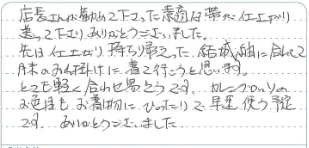 店長さんが勧めて下さった素適な帯が仕上がり
送って下さりありがとうございました。
先日仕上がり持ち帰った結城紬に合わせて
月末のお出掛けに着て行こうと思います。
とても軽く合わせ易そうです。
お色目もお着物にぴったりで早速使う予定
です。ありがとうございました